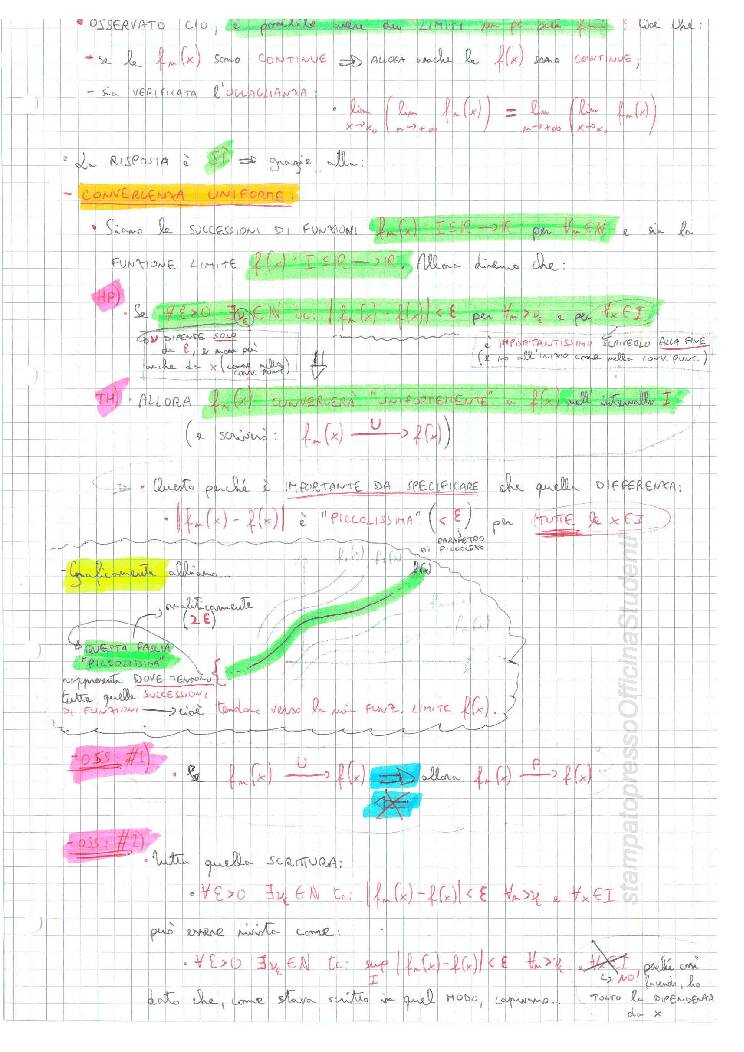 • OSSERVATO CIÒ, è possibile avere dei LIMITI : cioè che:
- se le fₙ(x) sono CONTINUE ⇒ ALLORA anche la f(x) sono CONTINUE;
- sia VERIFICATA l'UGUAGLIANZA:
• lim x→x₀ (lim n→+∞ fₙ(x)) = lim n→+∞ (lim x→x₀ fₙ(x))
• La RISPOSTA è SÌ ⇒ grazie alla:
- CONVERGENZA UNIFORME:
• Siano le SUCCESSIONI DI FUNZIONI fₙ(x) I⊆ℝ→ℝ per ∀n∈ℕ e sia la
FUNZIONE LIMITE f(x): I⊆ℝ→ℝ. Allora diremo che:
HP)
• Se ∀ε>0 ∃νε∈ℕ t.c: |fₙ(x)-f(x)|<ε per ∀n>νε e per ∀x∈I
DIPENDE SOLO
da ε, e non più
anche da x (come nella
CONV. PUNT.)
è IMPORTANTISSIMO SCRIVERLO ALLA FINE
(e no all'inizio come nella CONV. PUNT.)
⇓
TH) • ALLORA fₙ(x) CONVERGERÀ "UNIFORMEMENTE" a f(x) nell'intervallo I
(e scriverò: fₙ(x) —U→ f(x))
• Questo perché è IMPORTANTE DA SPECIFICARE che quella DIFFERENZA:
• |fₙ(x)-f(x)| è "PICCOLISSIMA" (<ε) per TUTTE le x∈I
PARAMETRO
DI PICCOLEZZA
- Graficamente abbiamo...
f(x)
analiticamente
(2ε)
QUESTA FASCIA
"PICCOLISSIMA"
rappresenta DOVE TENDONO
tutte quelle SUCCESSIONI
DI FUNZIONI → cioè tendono verso la mia FUNZ. LIMITE f(x).
- OSS. #1)
• Se fₙ(x) —U→ f(x) ⇒ allora fₙ(x) —P→ f(x)
⇐
- OSS. #2)
• Tutta quella SCRITTURA:
• ∀ε>0 ∃νε∈ℕ t.c: |fₙ(x)-f(x)|<ε ∀n>νε e ∀x∈I
può essere rivista come:
• ∀ε>0 ∃νε∈ℕ t.c: sup I |fₙ(x)-f(x)|<ε ∀n>νε e ∀x∈I
↳ NO! perché così
facendo, ho
TOLTO la DIPENDENZA
da x
dato che, come stava scritto in quel MODO, capivamo...
stampatopressoOfficinaStudenti